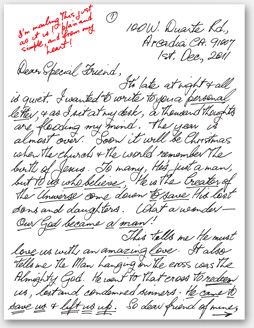 I'm mailing this just
as it is! Plain and
simple, and from my
heart!
1
100 W. Duarte Rd.,
Arcadia CA. 91007
1st. Dec, 2011
Dear Special Friend,
It's late at night & all
is quiet. I wanted to write to you a personal
letter, & as I sit at my desk, a thousand thoughts
are flooding my mind. The year is
almost over. Soon it will be Christmas
when the church & the world remember the
birth of Jesus. To many, He's just a man,
but to us who believe, He is the Creator of
the Universe come down to save His lost
sons and daughters. What a wonder—
Our God became a man!
This tells me He must
love us with an amazing love. It also
tells me the Man hanging on the cross was the
Almighty God. He went to that cross to redeem
us, lost and condemned sinners. He came to
save us & lift us up. So dear friend of mine,